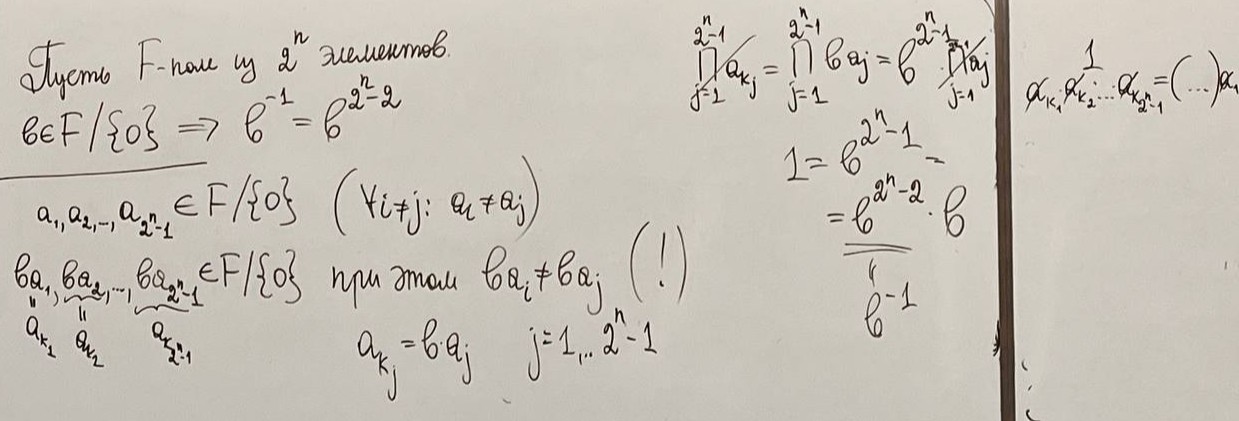 Пусть F-поле из 2ⁿ элементов.
b∈F/{0} ⇒ b⁻¹ = b^{2ⁿ-2}
a₁, a₂, ..., a_{2ⁿ-1} ∈ F/{0} (∀i≠j: a_i ≠ a_j)
ba₁, ba₂, ..., ba_{2ⁿ-1} ∈ F/{0} при этом ba_i ≠ ba_j (!)
= = 
a_{k₁} a_{k₂} a_{k_{2ⁿ-1}}
a_{k_j} = b·a_j j=1,..2ⁿ-1
∏_{j=1}^{2ⁿ-1} a_{k_j} = ∏_{j=1}^{2ⁿ-1} ba_j = b^{2ⁿ-1} · ∏_{j=1}^{2ⁿ-1} a_j
1 = b^{2ⁿ-1} =
= b^{2ⁿ-2} · b
=
b⁻¹
1
a_{k₁} a_{k₂} ... a_{k_{2ⁿ-1}} = (...)a₁